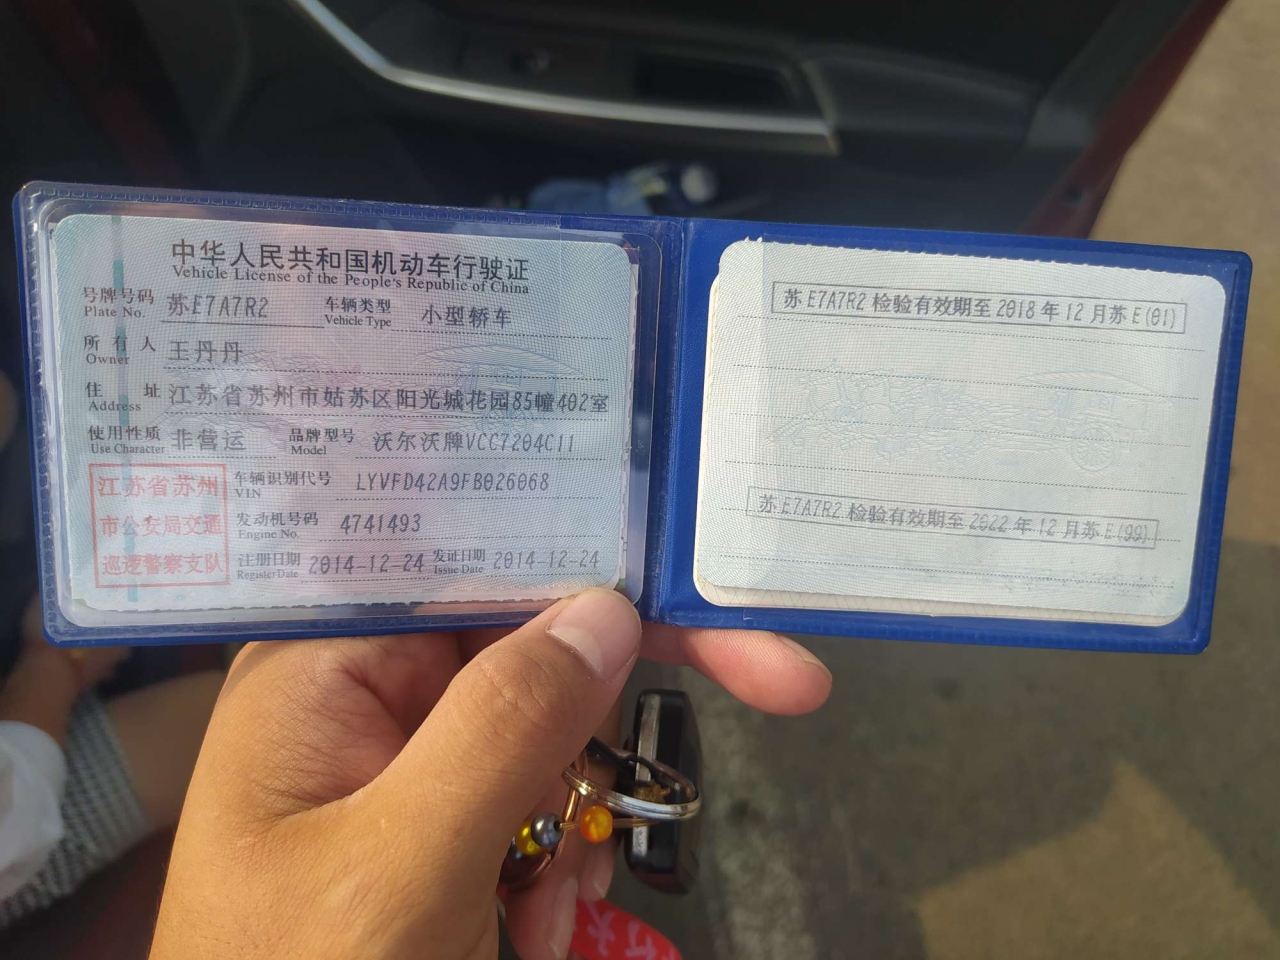 中华人民共和国机动车行驶证
Vehicle License of the People's Republic of China
号牌号码 苏E7A7R2 车辆类型 小型轿车
Plate No. Vehicle Type
所有人 王丹丹
Owner
住址 江苏省苏州市姑苏区阳光城花园85幢402室
Address
使用性质 非营运 品牌型号 沃尔沃牌VCC7204C11
Use Character Model
江苏省苏州
市公安局交通
巡逻警察支队
车辆识别代号 LYVFD42A9FB026068
VIN
发动机号码 4741493
Engine No.
注册日期 2014-12-24 发证日期 2014-12-24
Register Date Issue Date
苏E7A7R2检验有效期至2018年12月苏E(01)
苏E7A7R2检验有效期至2022年12月苏E(99)